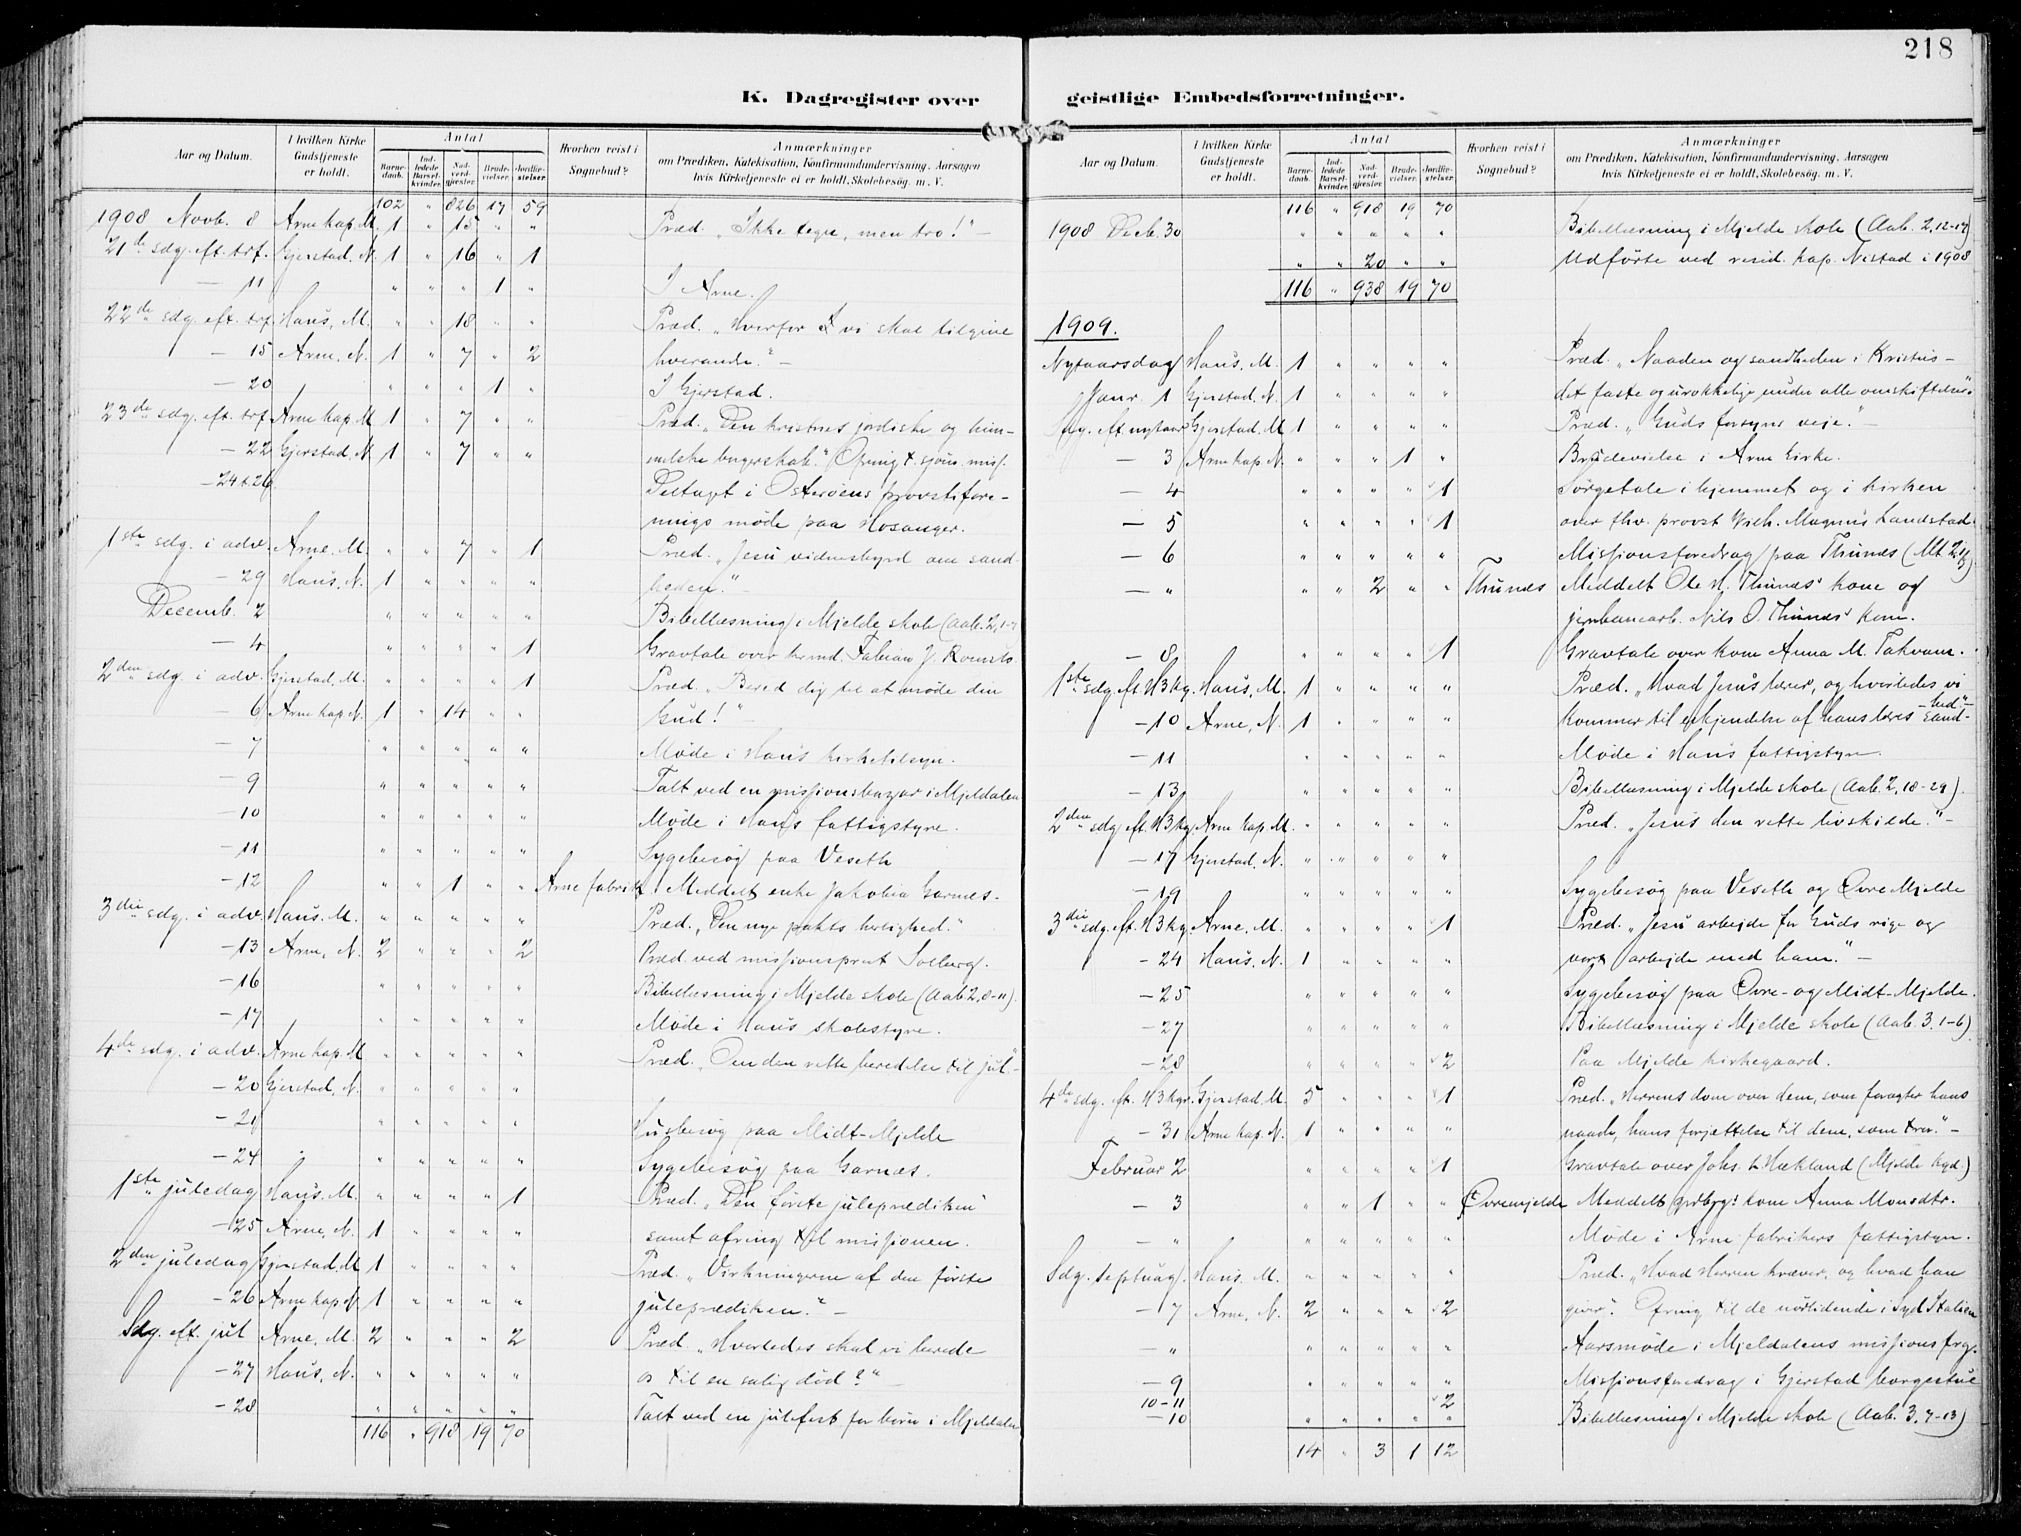 218
K. Dagregister over geistlige Embedsforretninger.
Aar og Datum. I hvilken Kirke Gudstjeneste er holdt. Antal Barnedaab. Indledede Barselkvinder. Nadverdgjester. Brudevielser. Jordfæstelser. Hvorhen reist i Sognebud? Anmærkninger om Prædiken, Katekisation, Konfirmandundervisning, Aarsagen hvis Kirketjeneste ei er holdt, Skolebesøg. m. V.
102 „ 826 17 59
1908 Novb. 8 Arne kap. M. 1 „ 15 „ „ Præd. „Ikke tegn, men tro!" –
21de sdg. eft. trf. Gjerstad. N. 1 „ 16 „ 1
– 11 „ „ „ 1 „ I Arne.
22de sdg. eft. trf. Haus, M. „ „ 18 „ „ Præd. „Hvorfor vi skal tilgive
– 15 Arne, N. 1 „ 7 „ 2 hverandre." –
– 20 „ „ „ 1 „ I Gjerstad.
23de sdg. eft. trf. Arne kap. M. 1 „ 7 „ „ Præd. „Den kristnes jordiske og him-
– 22 Gjerstad, N. 1 „ 7 „ „ melske borgerskab." Ofring t. sjøm. miss.
– 24 & 26 Deltaget i Osterøens provstifore-
nings møde paa Hosanger.
1ste sdg. i adv. Arne, M. „ „ 7 „ 1 Præd. „Jesu vidnesbyrd om sand-
– 29 Haus, N. 1 „ „ „ „ heden." –
Decemb. 2 „ „ „ „ „ Bibellæsning i Mjelde skole (Aab. 2, 1-7
– 4 „ „ „ „ 1 Gravtale over Fabian J. Romslo
2den sdg. i adv. Gjerstad, M. „ „ „ „ 1 Præd. „Bered dig til at møde din
– 6 Arne kap. N. 1 „ 14 „ „ Gud!" –
– 7 „ „ „ „ „ Møde i Haus kirketilsyn.
– 9 „ „ „ „ „ Talt ved en missionsbazar i Mjeldalen
– 10 „ „ „ „ „ Møde i Haus fattigstyre.
– 11 „ „ „ „ „ Sygebesøg paa Veseth
– 12 „ „ 1 „ „ Arne fabrik Meddelt enke Jakobia Garnes.
3die sdg. i adv. Haus. M. „ „ „ „ „ Præd. „Den nye pakts herlighed."
– 13 Arne, N. 2 „ „ „ 2 Præd. ved missionsprest Solberg.
– 16 „ „ „ „ „ Bibellæsning i Mjelde skole (Aab. 2, 8-11).
– 17 „ „ „ „ „ Møde i Haus skolestyre.
4de sdg. i adv. Arne kap. M. „ „ „ „ „ Præd. „Om den rette beredelse til jul"-
– 20 Gjerstad, N. „ „ „ „ „
– 21 „ „ „ „ „ Husbesøg paa Midt-Mjelde
– 24 „ „ „ „ „ Sygebesøg paa Garnes.
1ste juledag Haus. M. „ „ „ „ 1 Præd. „Den første juleprædiken"
– 25 Arne, N. 1 „ „ „ „ samt ofring til missionen.
2den juledag Gjerstad, M 1 „ „ „ „ Præd. „Virkningerne af den første
– 26 Arne kap. N. 1 „ „ „ „ juleprædiken." –
Sdg. eft. jul Arne, M. 2 „ „ „ 2 Præd. „Hvorledes skal vi berede
– 27 Haus, N. „ „ „ „ „ os til en salig død?" –
– 28 „ „ „ „ „ Talt ved en julefest for børn i Mjeldalen
116 „ 918 19 70
Aar og Datum. I hvilken Kirke Gudstjeneste er holdt. Antal Barnedaab. Indledede Barselkvinder. Nadverdgjester. Brudevielser. Jordfæstelser. Hvorhen reist i Sognebud? Anmærkninger om Prædiken, Katekisation, Konfirmandundervisning, Aarsagen hvis Kirketjeneste ei er holdt, Skolebesøg. m. V.
116 „ 918 19 70
1908 Decb. 30 „ „ „ „ „ Bibellæsning i Mjelde skole (Aab. 2, 12-17)
„ „ 20 „ „ Udførte ved resid. kap. Nistad i 1908
116 „ 938 19 70
1909.
Nytaarsdag Haus. M. 1 „ „ „ „ Præd. „Naaden og sandheden i Kristus –
Janr. 1 Gjerstad, N. 1 „ „ „ „ det faste og urokkelige under alle omskiftelser".
Sdg. eft. nytaar Gjerstad, M. 1 „ „ „ „ Præd. „Guds forsyns veje." –
– 3 Arne kap. N. „ „ „ 1 „ Brudevielse i Arne kirke.
– 4 „ „ „ „ 1 Sørgetale i hjemmet og i kirken
– 5 „ „ „ „ 1 over fhv. provst Vilh. Magnus Landstad.
– 6 „ „ „ „ „ Missionsforedrag paa Thunes
– „ „ „ 2 „ „ Thunes Meddelt Ole N. Thunes' kone og
jernbanearb. Nils O. Thunes' kone.
– 8 „ „ „ „ 1 Gravtale over kone Anna M. Takvam.
1ste sdg. eft. H3kg. Haus, M. 1 „ „ „ „ Præd. „Hvad Jesus lærer, og hvorledes vi
– 10 Arne, N. 1 „ „ „ „ kommer til erkjendelse af hans læres sand-hed"-
– 11 „ „ „ „ „ Møde i Haus fattigstyre.
– 13 „ „ „ „ „ Bibellæsning i Mjelde skole (Aab. 2, 18-29).
2den sdg. eft. H3kg. Arne kap. M. „ „ „ „ „ Præd. „Jesus den rette livskilde." –
– 17 Gjerstad. N. „ „ „ „ „
– 19 „ „ „ „ „ Sygebesøg paa Veseth og Øvre Mjelde
3die sdg. eft. H3kg. Arne, M. „ „ „ „ 1 Præd. „Jesu arbejde for Guds rige og
– 24 Haus. N. 1 „ „ „ „ vort arbejde med ham." –
– 25 „ „ „ „ „ Sygebesøg paa Øvre- og Midt-Mjelde.
– 27 „ „ „ „ „ Bibellæsning i Mjelde skole (Aab. 3. 1-6).
– 28 „ „ „ „ 2 Paa Mjelde kirkegaard.
4de sdg. eft. H3kgr. Gjerstad. M. 5 „ „ „ 1 Præd. „Herrens dom over dem, som foragter hans
– 31 Arne kap. N. 1 „ „ „ „ naade, hans forjættelse til dem, som tror." –
Februar 2 „ „ „ „ 1 Gravtale over Johs. L. Hækland (Mjelde kgd.)
– 3 „ „ 1 „ „ Øvremjelde Meddelt kone Anna Monsdtr.
– „ „ „ „ „ „ Møde i Arne fabrikers fattigstyre.
Sdg. septuag. Haus. M. „ „ „ „ „ Præd. „Hvad Herren kræver, og hvad han
– 7 Arne, N. 2 „ „ „ 2 giver". Ofring til de nødlidende i Syd Italien
– „ „ „ „ „ „ Aarsmøde i Mjeldalens missionsforg.
– 9 „ „ „ „ „ Missionsforedrag i Gjerstad borgestue
10-11 „ „ „ „ 2
– 10 „ „ „ „ „ Bibellæsning i Mjelde skole (Aab. 3, 7-13)
14 „ 3 1 12